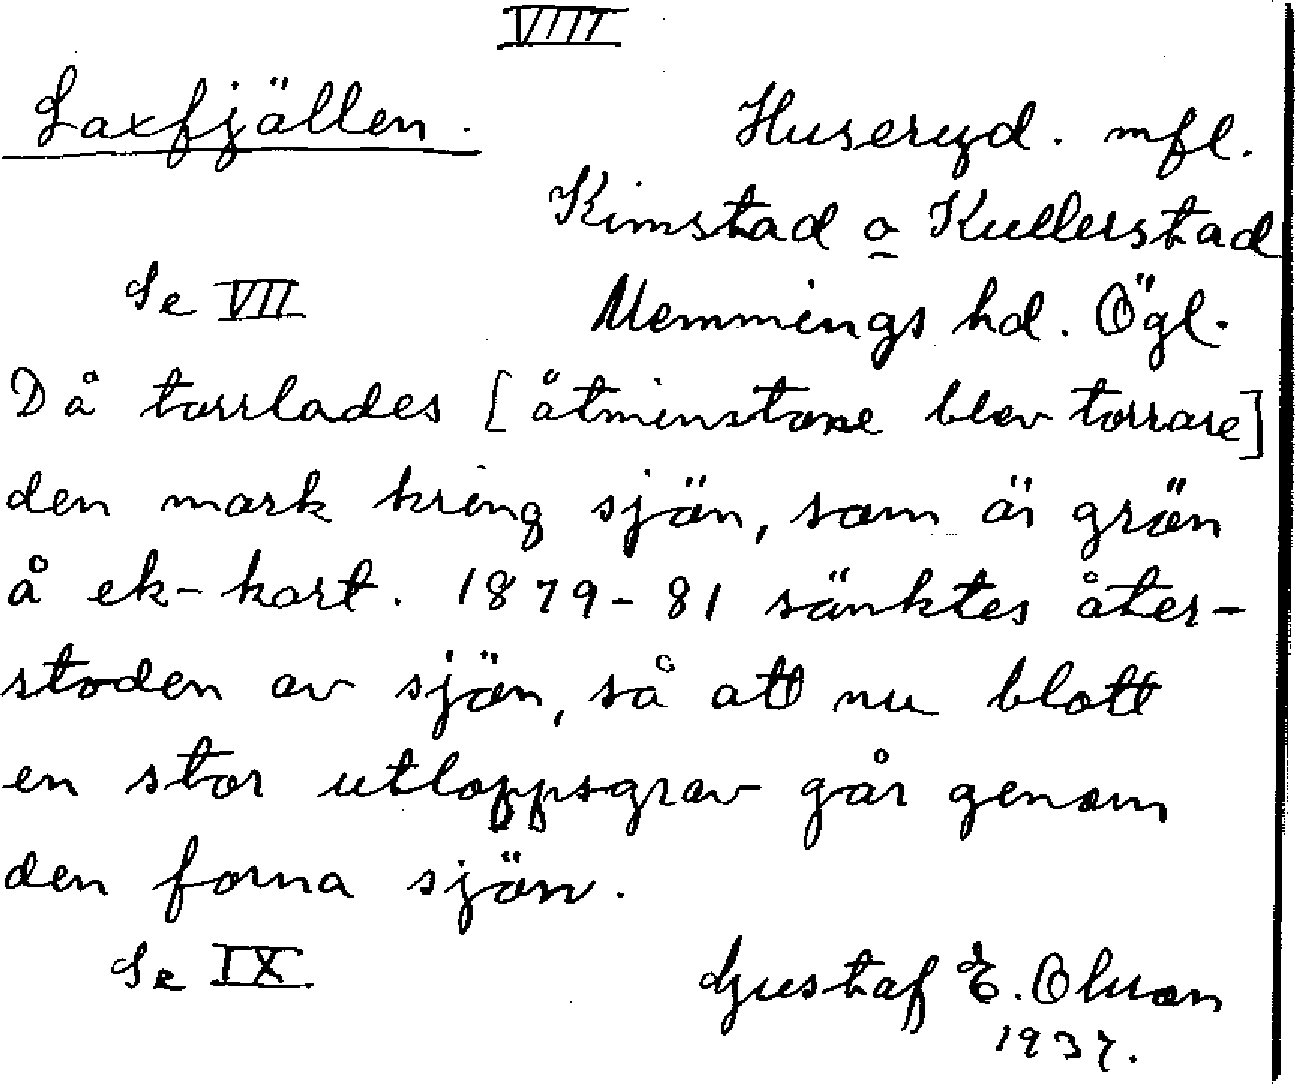 VIII
Saxfjällen.
Huseryd. mfl.
Kimstad o Kullerstad
Se VII
Memmings hd. Ögl.
Då torrlades [åtminstone blev torrare]
den mark kring sjön, som är grön
å ek-kart. 1879-81 sänktes åter-
stoden av sjön, så att nu blott
en stor utloppsgrav går genom
den forna sjön.
Se IX.
Gustaf E. Olson
1937.